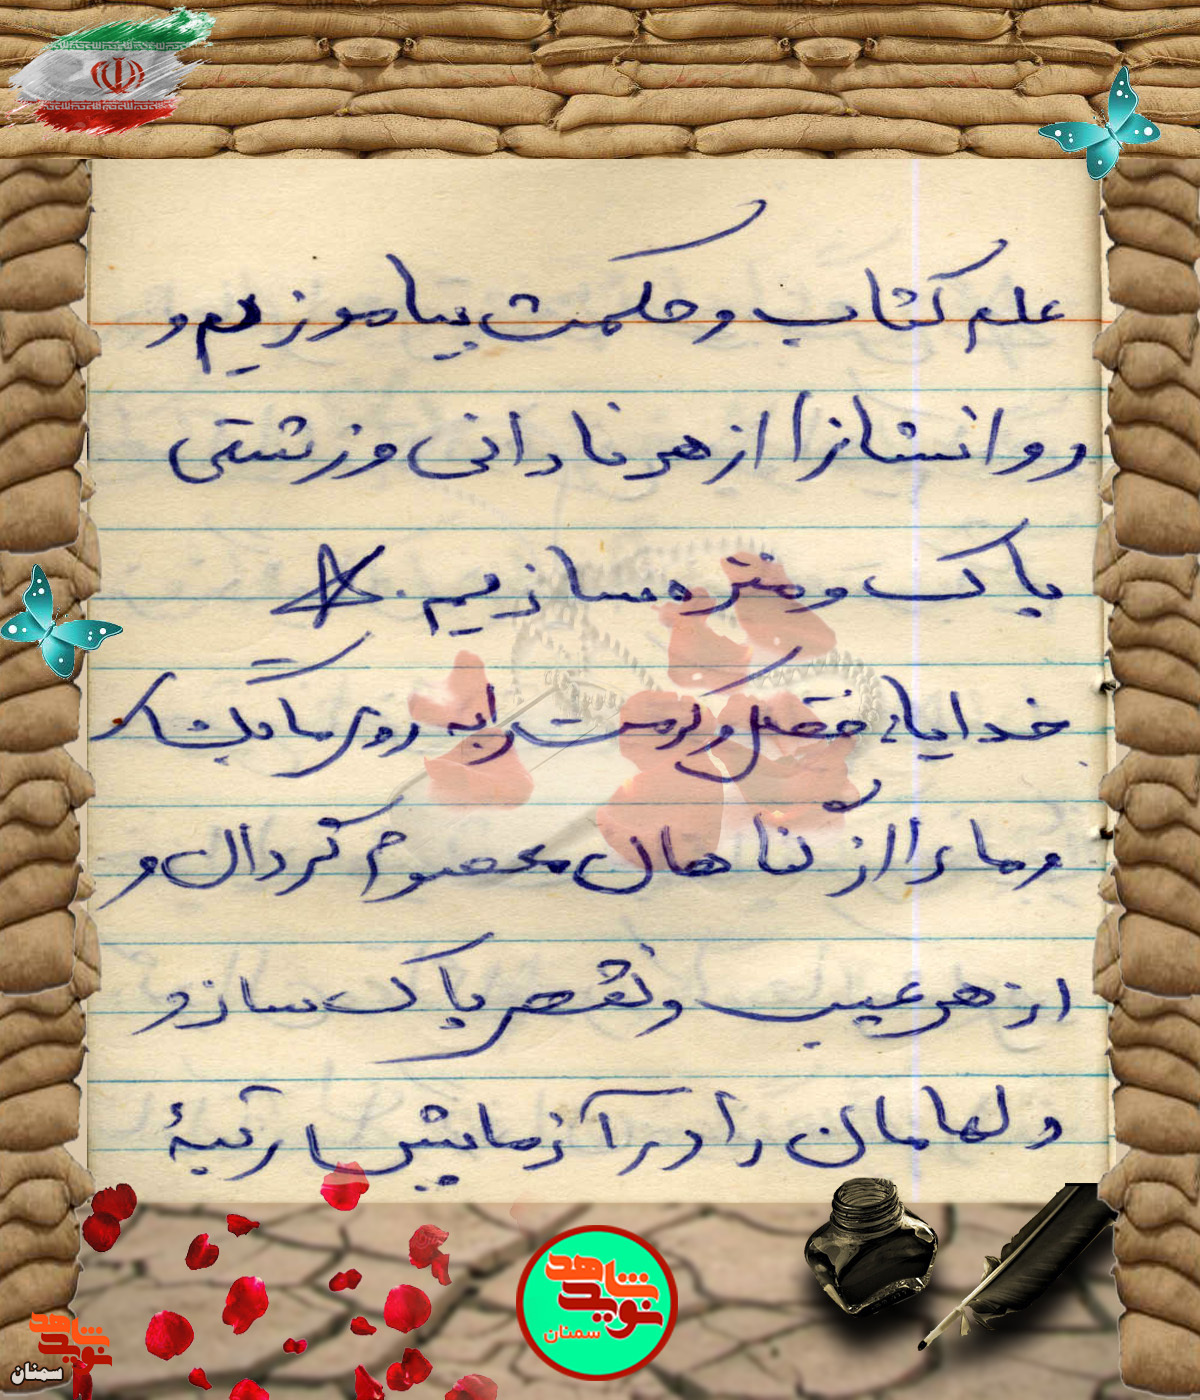 علم کتاب و حکمت بیاموزیم و
و روانشانرا از هر نادانی و زشتی
پاک و منزه سازیم.
خدایا، فضل و کرمت را به روی ما بگشا
و ما را از گناهان معصوم گردان و
از هر عیب و نقص پاک ساز و
دلهامان را در آزمایش با رتبهٔ
نوید شاهد
سمنان
نوید شاهد
سمنان